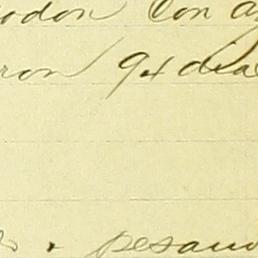 odon Con a
ron 94 dia
s. pesand